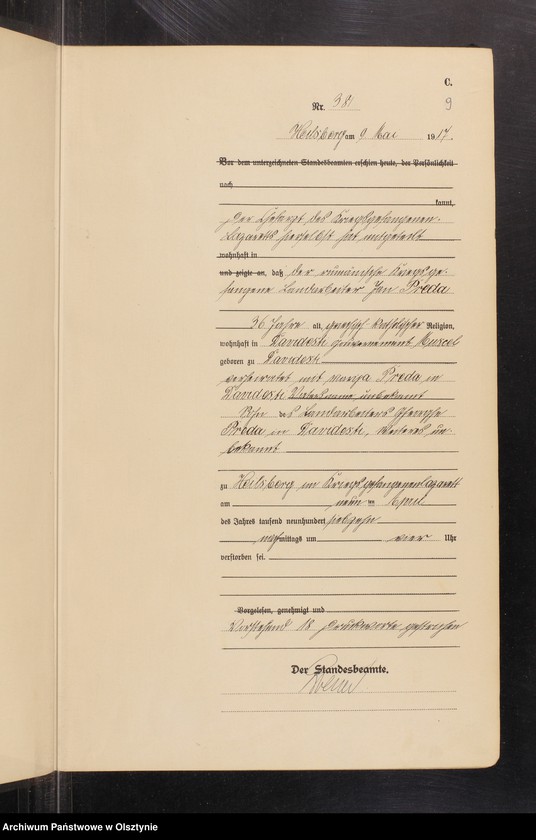 C.
Nr. 38
9
Heilsberg am 9 Mai 1917.
Vor dem unterzeichneten Standesbeamten erschien heute, der Persönlichkeit
nach
kannt,
Der Chefarzt des Kriegsgefangenen-
Lazaretts hierselbst hat mitgeteilt
wohnhaft in
und zeigte an, daß der rumänische Kriegsge-
fangene Landarbeiter Jon Preda
36 Jahre alt, griechisch katholischer Religion,
wohnhaft in Davidesti Muscel
geboren zu Davidesti
verheiratet mit Preda in
Davidesti, unbekannt
Sohn des Landarbeiters
Preda in Davidesti, weiteres un-
bekannt
zu Heilsberg im Kriegsgefangenenlazarett
am neun ten April
des Jahres tausend neunhundert siebzehn
nachmittags um vier Uhr
verstorben sei.
Vorgelesen, genehmigt und
Vorstehend 18 Druckworte gestrichen
Der Standesbeamte.
Archiwum Państwowe w Olsztynie